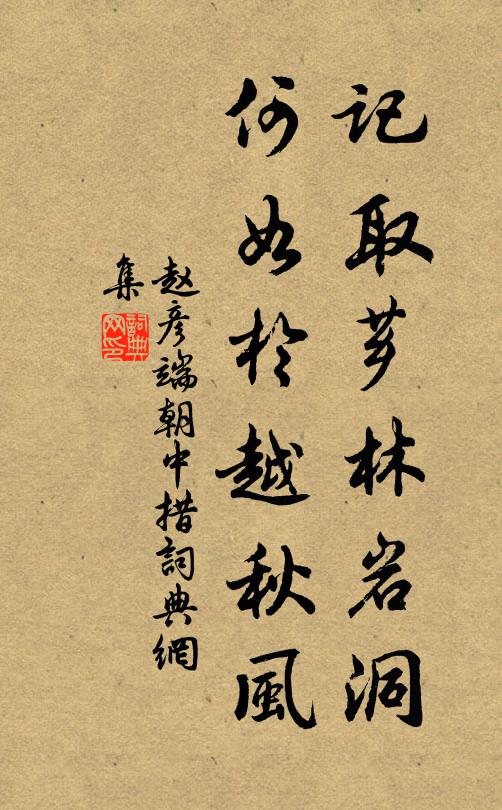 记取芗林岩洞
何如於越秋風
赵彦端朝中措詞典網
集
詞典
网印